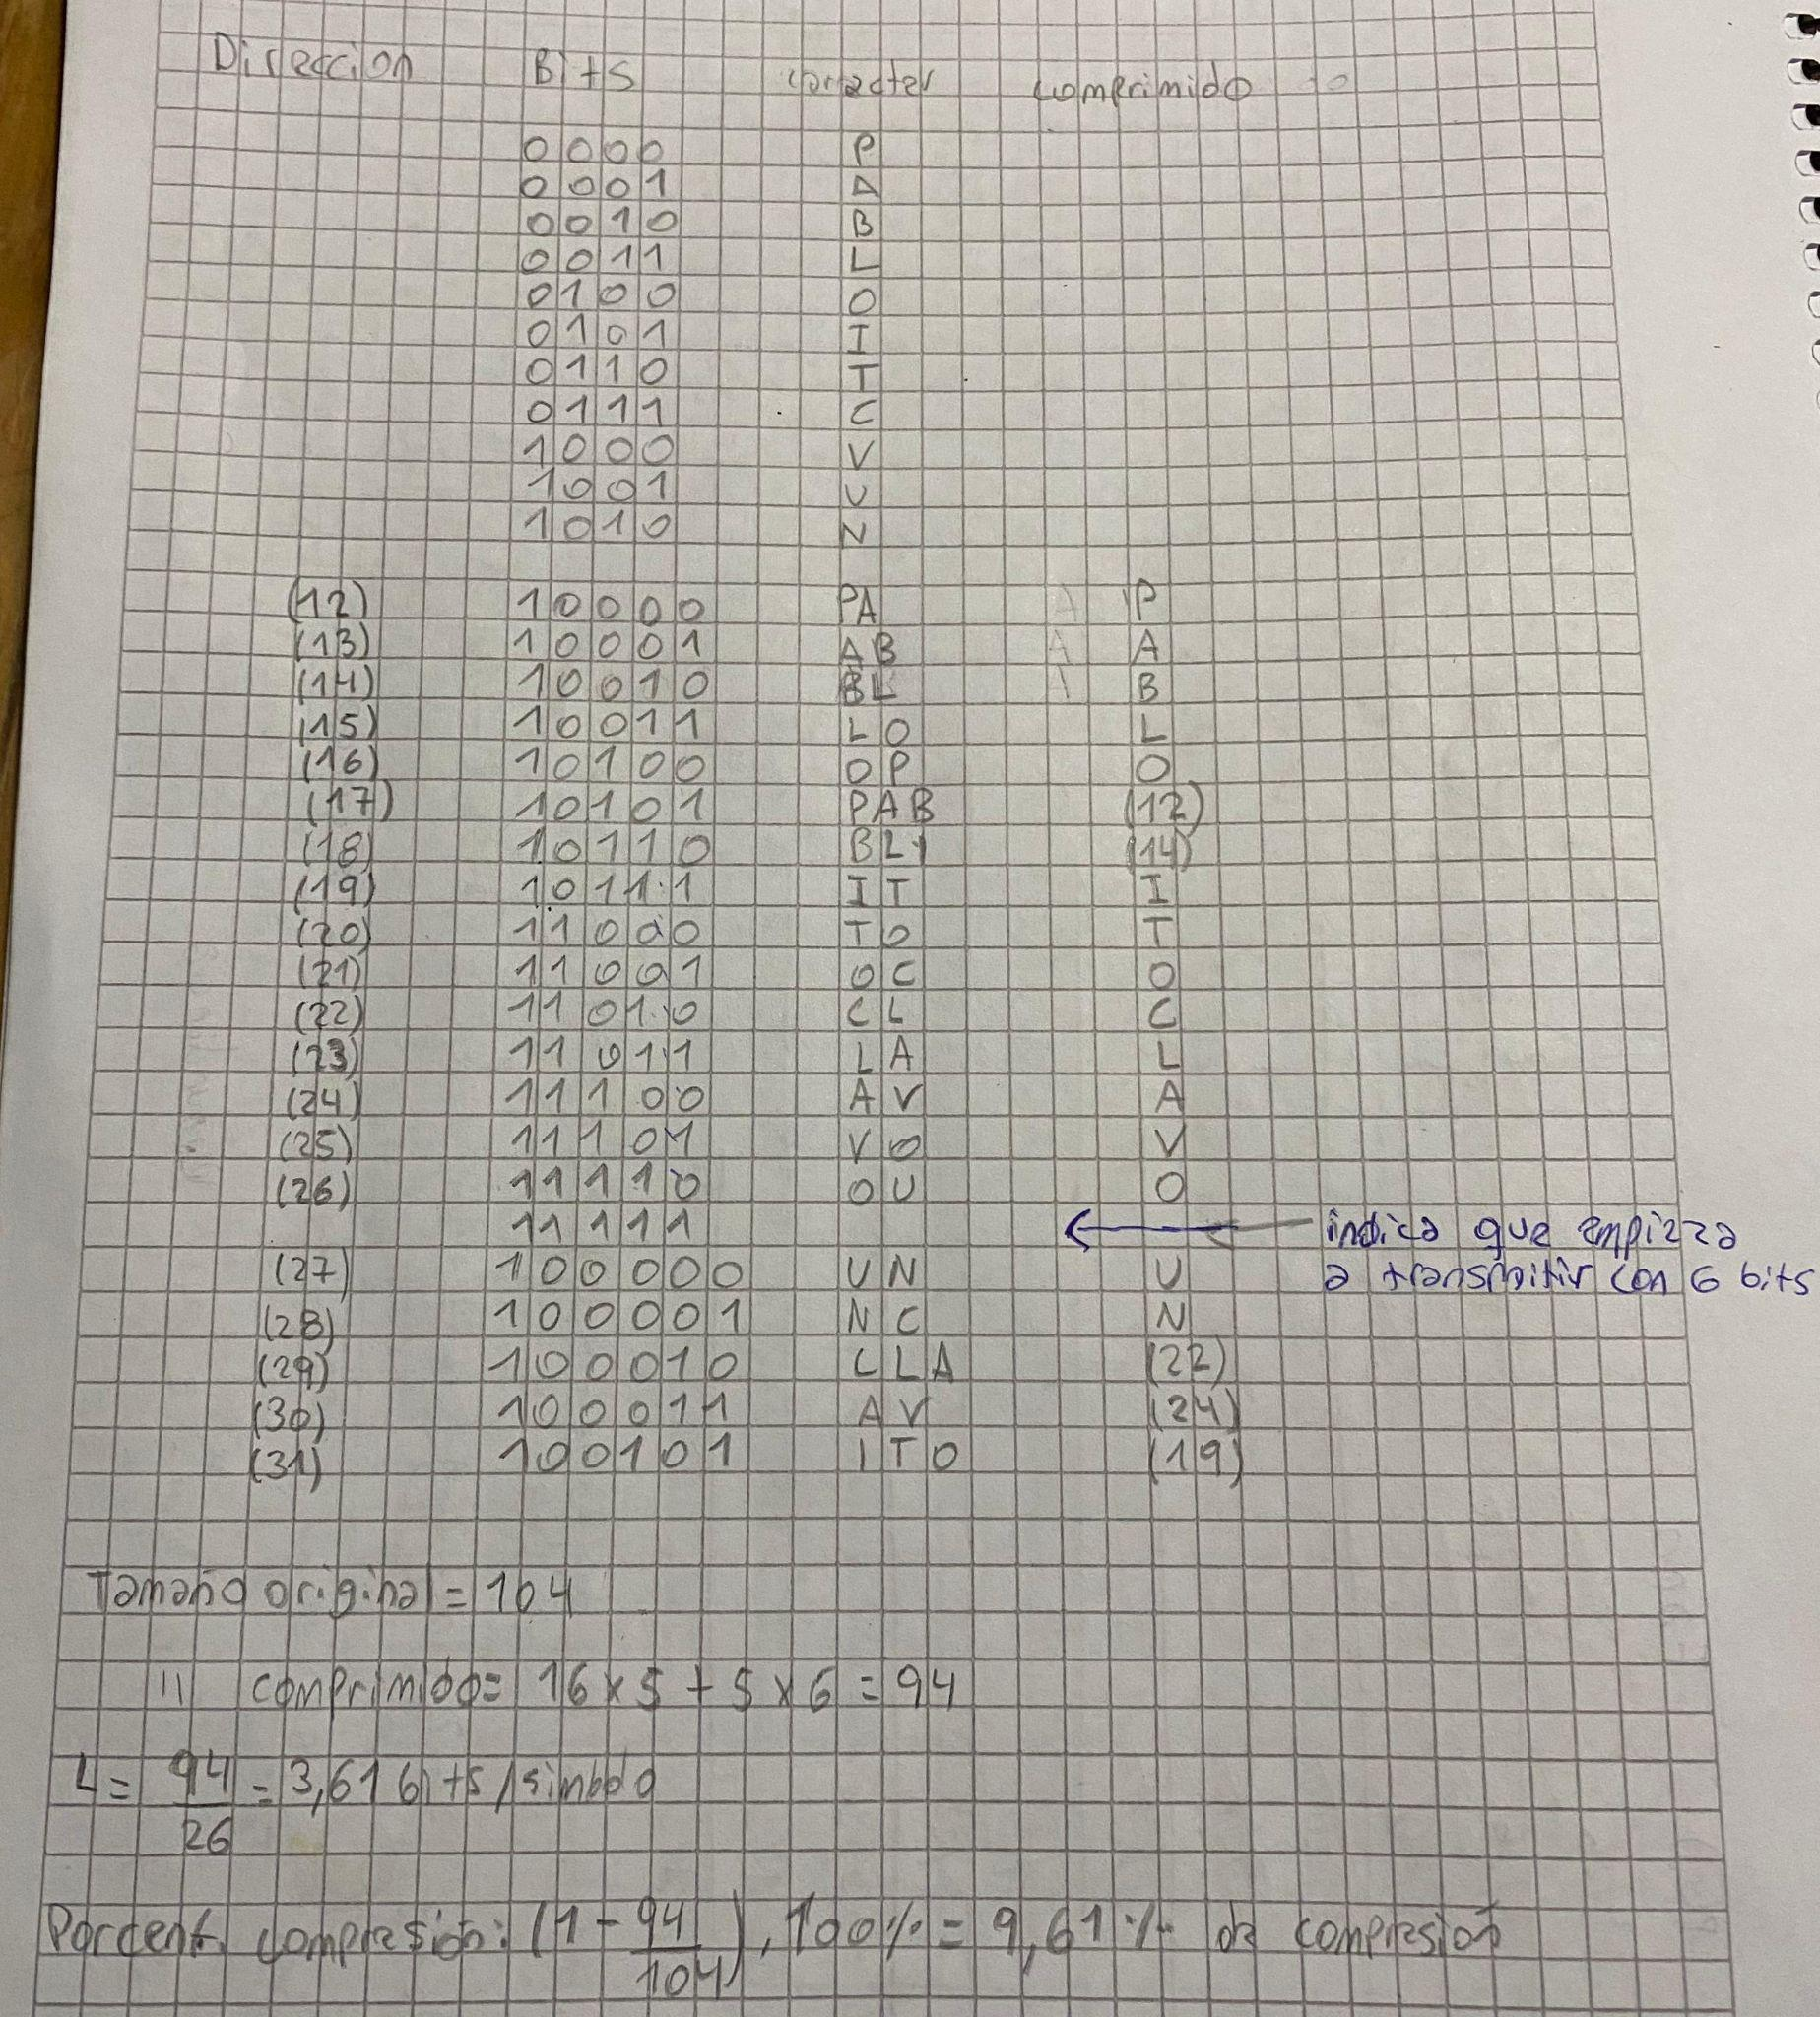 Dirección Bits carácter comprimido
0000 P
0001 A
0010 B
0011 L
0100 O
0101 I
0110 T
0111 C
1000 V
1001 U
1010 N
(12) 10000 PA P
(13) 10001 AB A
(14) 10010 BL B
(15) 10011 LO L
(16) 10100 OP O
(17) 10101 PAB (12)
(18) 10110 BLI (14)
(19) 10111 IT I
(20) 11000 TO T
(21) 11001 OC O
(22) 11010 CL C
(23) 11011 LA L
(24) 11100 AV A
(25) 11101 VO V
(26) 11110 OU O
11111 indica que empieza
(27) 100000 UN U a transmitir con 6 bits
(28) 100001 NC N
(29) 100010 CLA (22)
(30) 100011 AV (24)
(31) 100101 ITO (19)
Tamaño original = 104
11 comprimido = 16 x 5 + 5 x 6 = 94
L = 94/26 = 3,61 bits/simbolo
Porcent. compresión: (1 - 94/104) . 100% = 9,61 % de compresión